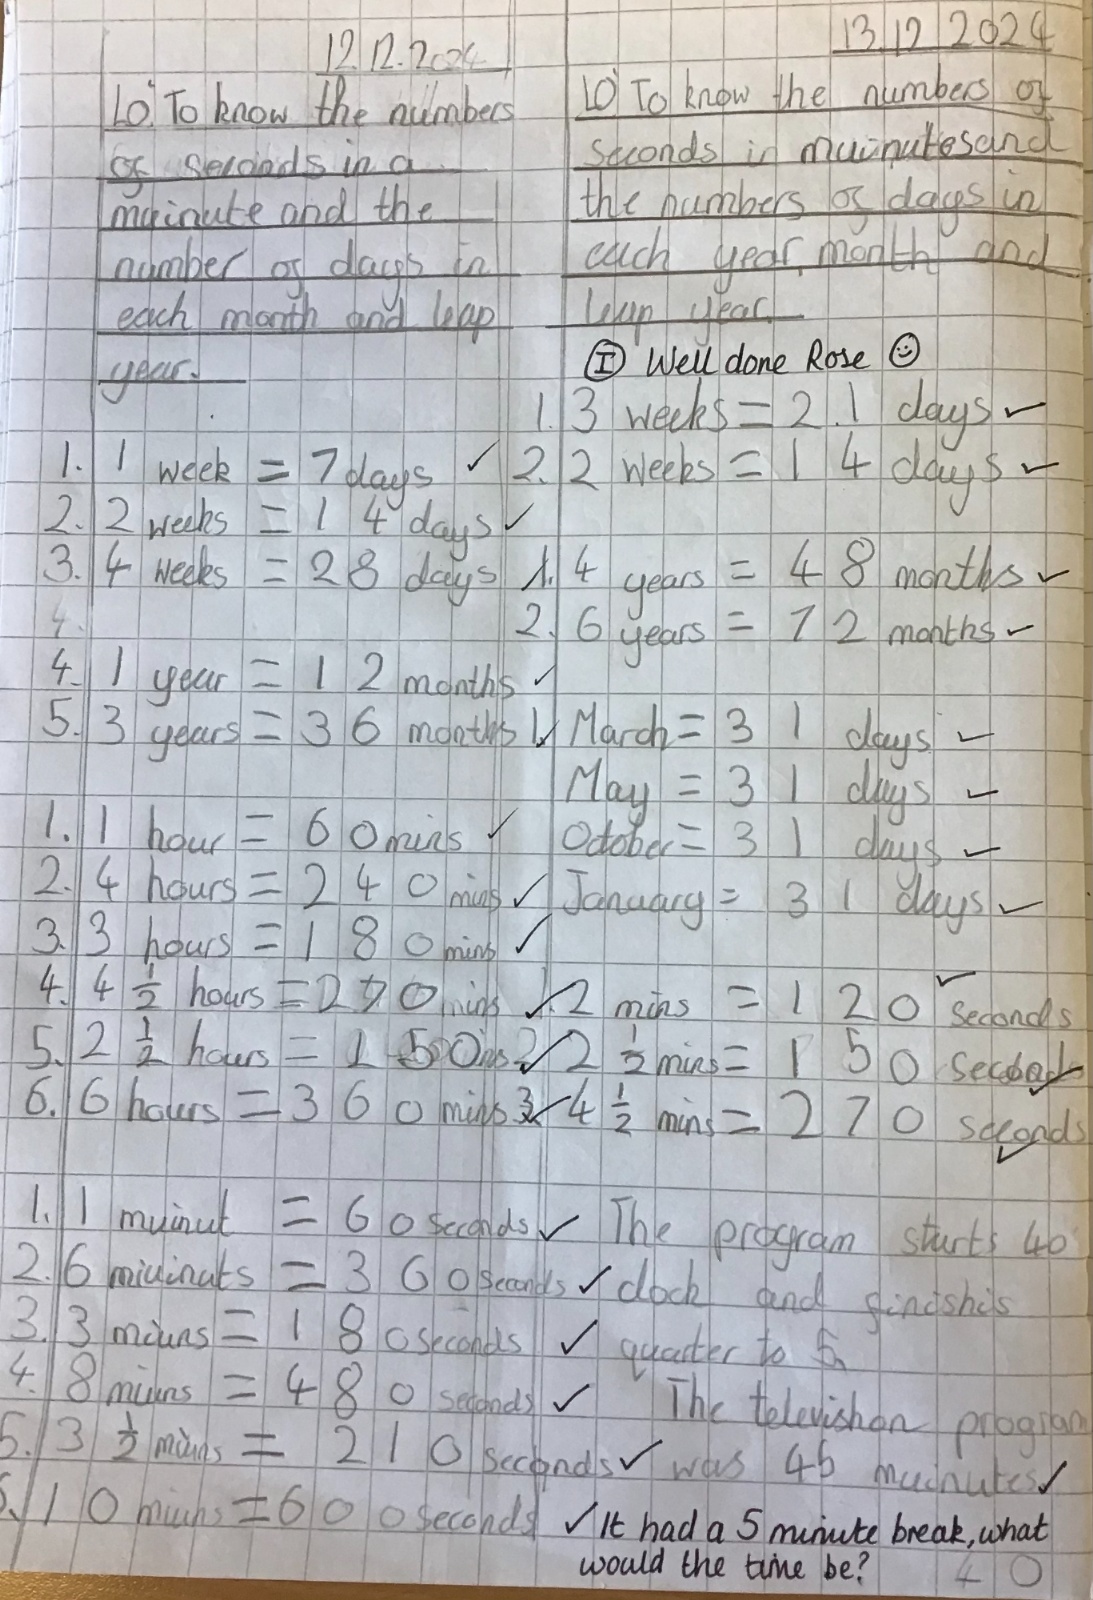 12.12.2024
LO: To know the numbers
of seconds in a
mainute and the
number of days in
each month and leap
year.
1. 1 week = 7 days ✓
2. 2 weeks = 14 days ✓
3. 4 weeks = 28 days
4.
4. 1 year = 12 months ✓
5. 3 years = 36 months ✓
1. 1 hour = 60 mins ✓
2. 4 hours = 240 mins ✓
3. 3 hours = 180 mins ✓
4. 4 1/2 hours = 270 mins ✓
5. 2 1/2 hours = 150 ✓
6. 6 hours = 360 mins ✓
1. 1 muinut = 60 seconds ✓
2. 6 miuinuts = 360 seconds ✓
3. 3 miuns = 180 seconds ✓
4. 8 miuns = 480 seconds ✓
5. 3 1/2 miuns = 210 seconds ✓
6. 10 miuns = 600 seconds ✓
13.12 2024
LO To know the numbers of
seconds in muinutes and
the numbers of days in
each year, month and
leap year.
I Well done Rose ☺
1. 3 weeks = 21 days ✓
2. 2 weeks = 14 days ✓
1. 4 years = 48 months ✓
2. 6 years = 72 months ✓
1. March = 31 days ✓
May = 31 days ✓
October = 31 days ✓
January = 31 days ✓
1. 2 mins = 120 seconds ✓
2. 2 1/2 mins = 150 seconds ✓
3. 4 1/2 mins = 270 seconds ✓
The program starts 4o
clock and finishis
quarter to 5.
The televishon program
was 45 muinutes ✓
It had a 5 minute break, what
would the time be? 40